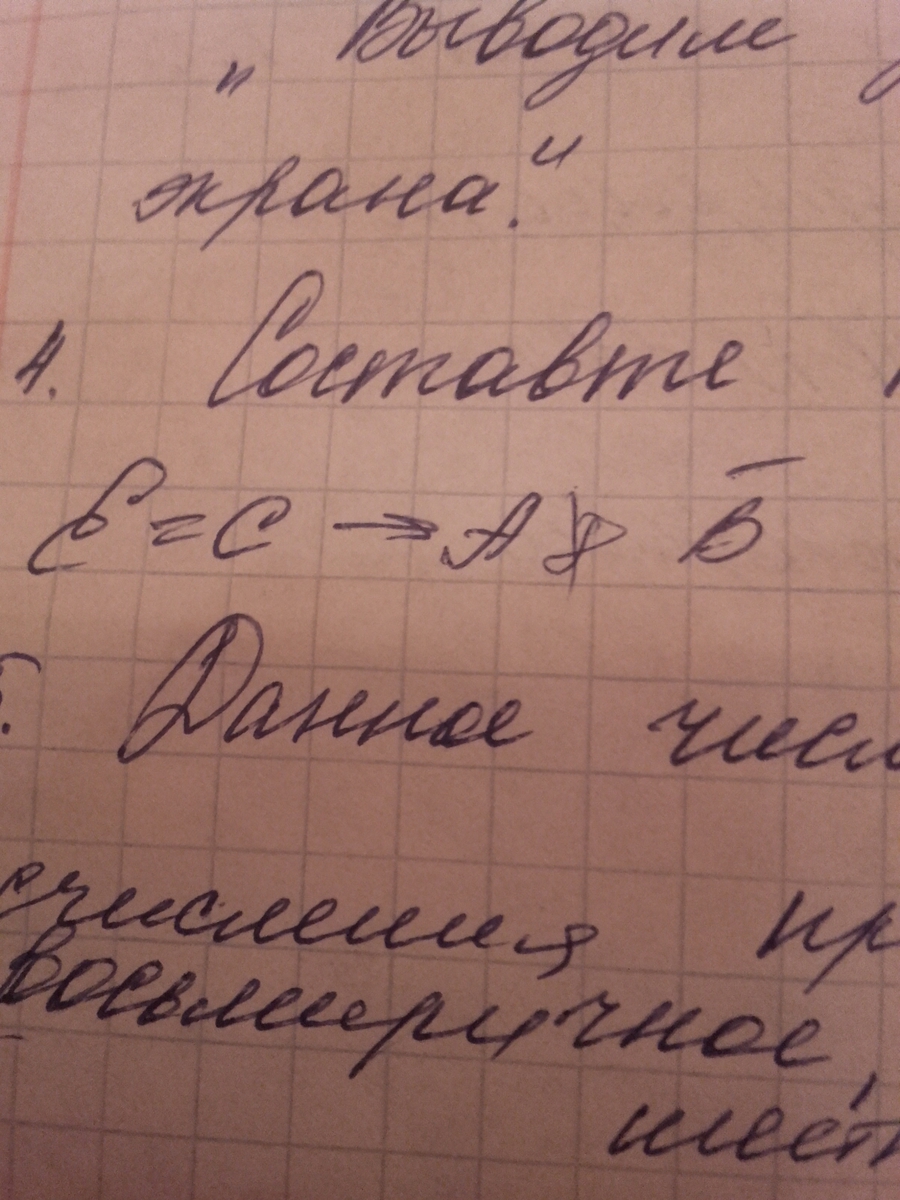 „ Выводим
экрана."
4. Составте
E = C → A & B̅
5. Данное числ
счисления пр
восьмеричное,
шест